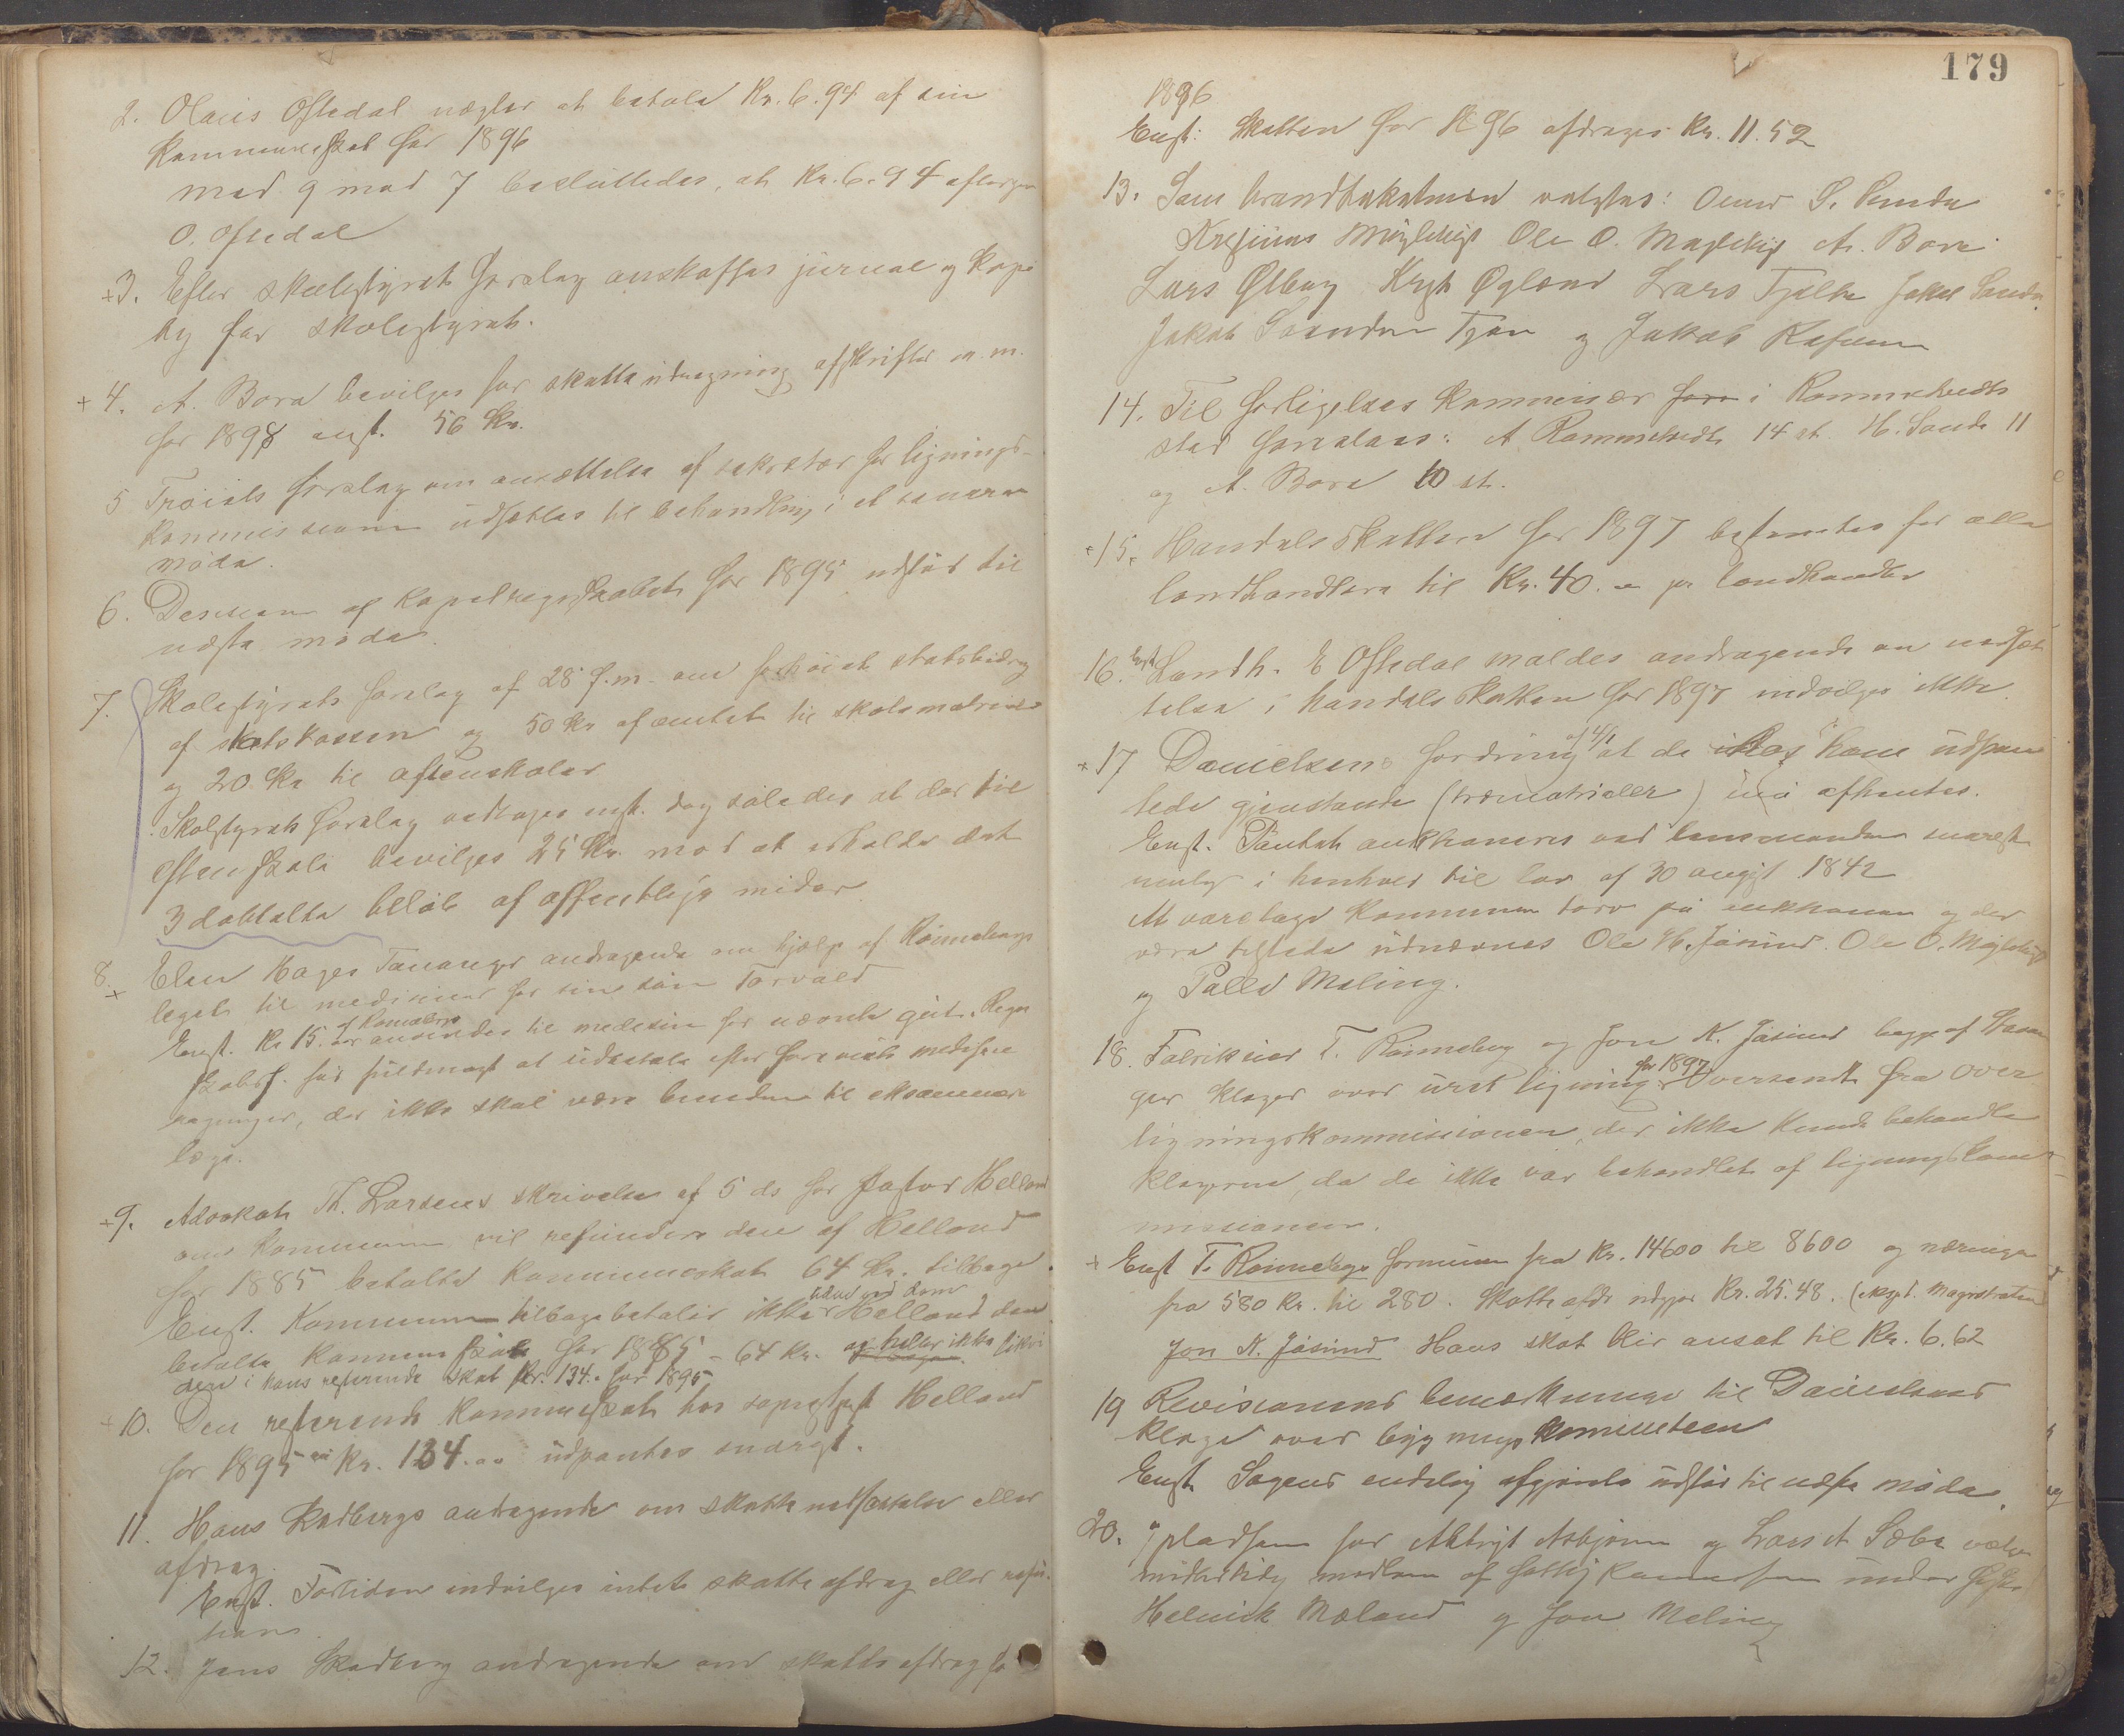 2. Olaus Oftedal nægter at betale Kr. 6.94 af sin
kommuneskat for 1896
med 9 mod 7 besluttedes, at Kr. 6.94 aftages
O. Oftedal
+3. Efter skolestyrets forslag anskaffes jurnal og kopi
bog for skolestyret.
+4. A. Bore bevilges for skatteudregning afskrifter m.m.
for 1898 enst. 56 Kr.
5 Træiels forslag om ansættelse af sekretær for lignings-
kommissionen udsættes til behandling i et senere
møde.
6. Decision af kapelregnskabet for 1895 udstår til
næste møde.
7. Skolestyrets forslag af 28 f.m. om forhøiet statsbidrag
af skolekassen og 50 Kr af amtet til skolemateriel
og 20 Kr til aftenskoler
Skolstyrets forslag vedtages enst. dog således at der til
aftenskole bevilges 25 Kr. mod at erholde det
3 dobbelte beløb af offentlige midler
8.+ Elen Hages Tananger andragende om hjælp af Rønnebergs
legat til medisiner for sin søn Torvald
Enst. Kr 15. af Rønnebergs anvendes til medesin for nævnte gut. Regn
skabsf. får fuldmagt at udbetale efter foreviste medisin
regninger, der ikke skal være bunden til eksaminer
læge.
+9. Advokat Th. Larsens skrivelse af 5 ds for pastor Helland
om kommunen vil refundere den af Helland
for 1885 betalte kommuneskat 64 Kr. tilbage.
Enst. Kommunen tilbagebetaler ikke uden ved dom Helland den
betalte kommuneskat for 1885 - 64 Kr. og heller ikke likvi
dere i hans resterende skat Kr. 134.- for 1895
+10. Den resterende kommuneskat hos sogneprest Helland
for 1895 Kr. 134.oo udpantes snarest.
11. Hans Rødbergs andragende om skattenedsættelse eller
afdrag.
Enst. Fortiden indvilges intet skatteafdrag eller refu-
tions.
12. Jens Skadberg andragende om skatteafdrag for
179
1896
Enst: Skatten for 1896 afdrages Kr. 11.52
13. Som brandtakstmænd valgtes: Omund S. Sunde
Ole O. Myklebust A. Bore
Lars Ølberg Kryst Øgland Lars Tjelta Jakob Sande
Jakob Tjøn og Jakob Risnes
14. Til forligelses kommisær i Rommetvedts
sted foresloges: A Rommetvedt 14 st. H. Sande 11
og A. Bore 10 st.
+15. Handelsskatten for 1897 bestemtes for alle
landhandlere til Kr. 40.- pr landhandler
16. Enst Landh. E Oftedal meldes andragende om nedsæt
telse i handelsskatten for 1897 indvilges ikke.
+17 Danielsens fordring af 4/1 at de hos ham udpan
tede gjenstande (træmatrialer) må afhentes.
Enst. Pantet auktioneres ved lensmanden snarest
mulig i henhold til lov af 30 august 1842
At varetage kommunens tarv på auktionen og der
være tilstede udnævnes Ole H. Jåsund. Ole O. Myklebust
og Palle Meling.
18. Fabrikeier T. Rønneberg og Jon N. Jåsund begge af Stavan
ger klager over uret ligning for 1897 Oversendt fra over
ligningskommissionen, der ikke kunde behandle
klagerne, da de ikke var behandlet af ligningskom-
missionen.
+ Enst T. Rønnebergs formue fra Kr. 14600 til 8600 og næringen
fra 580 Kr. til 280. Skatteafdr. udgjør Kr. 25.48. (ekspt. Magistraten
Jon N. Jåsund Hans skat blir ansat til Kr. 6.62
19 Revisionens bemærkninger til Danielsens
klage over bygningskomiteen
Enst Sagens endelig afgjørelse udstår til næste møde.
20. I pladsen for Albrigt Asbjørn og Lars A Sæbø vælges
midlertidig medlem af fattigkommissionen under
Helmik Mæland og Jon Meling